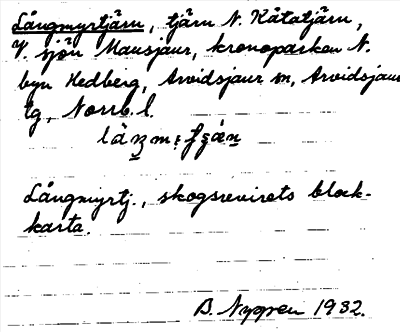 Långmyrtjärn, tjärn N. Kåtatjärn,
V. sjön Mausjaur, kronoparken N.
byn Hedberg, Arvidsjaur sn, Arvidsjaur
tg, Norrb. l.
Långmyrtj., skogsrevirets block-
karta.
B. Nygren 1932.